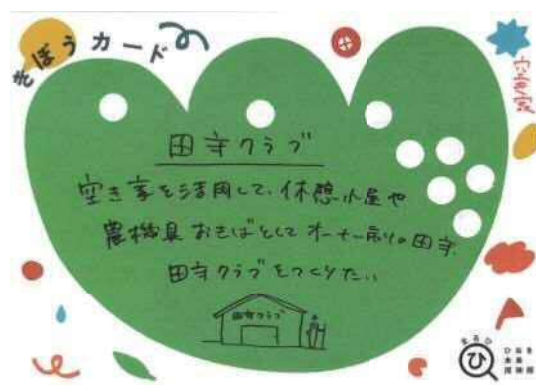 きぼうカード
田守クラブ
空き家を活用して、休憩小屋や
農機具おきばとしてオーナー制の田守
田守クラブをつくりたい
田守クラブ
まるひ
ひ